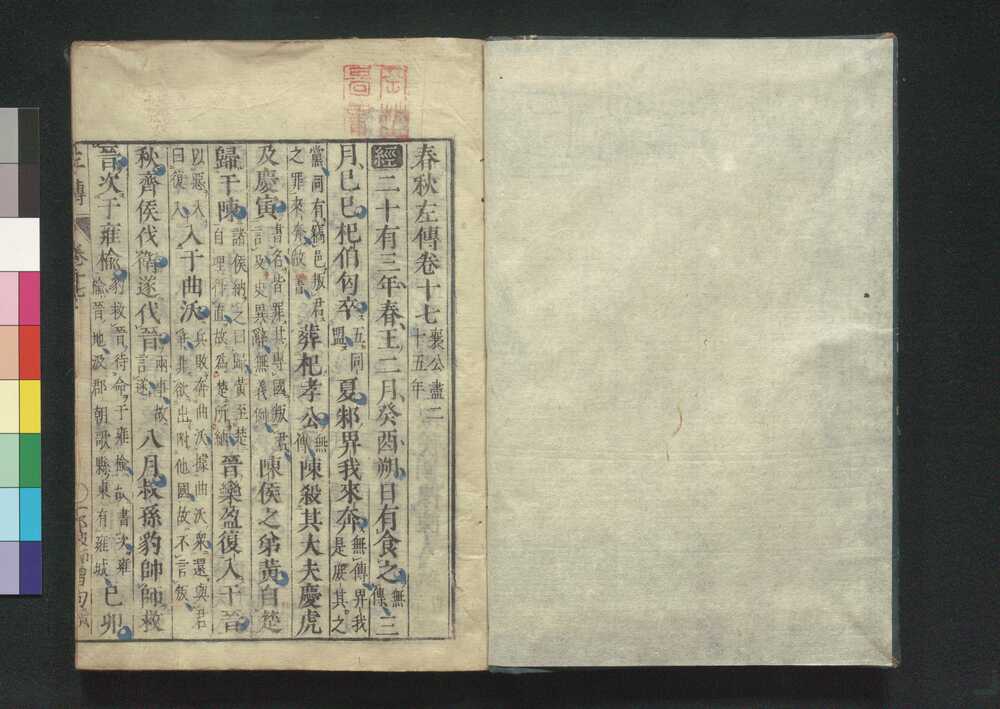 春秋左傳卷十七 襄公盡二十五年
經二十有三年春王二月癸酉朔日有食之 無傳 三
月己巳杞伯匄卒 五同盟 夏邾畀我來奔 無傳畀我是庶其之
黨同有竊邑叛君之罪來奔故書 葬杞孝公 無傳 陳殺其大夫慶虎
及慶寅 書名皆罪其專國叛君言及史異辭無義例 陳侯之弟黃自楚
歸于陳 諸侯納之曰歸黃至楚自理得直故爲楚所納 晉欒盈復入于晉
以惡入曰復入 入于曲沃 兵敗奔曲沃據曲沃衆還與君爭非欲出附他國故不言叛
秋齊侯伐衛遂伐晉 兩事故言遂 八月叔孫豹帥師救
晉次于雍榆 豹救晉待命于雍榆故書次雍榆晉地汲郡朝歌縣東有雍城 己卯
左傳 卷十七